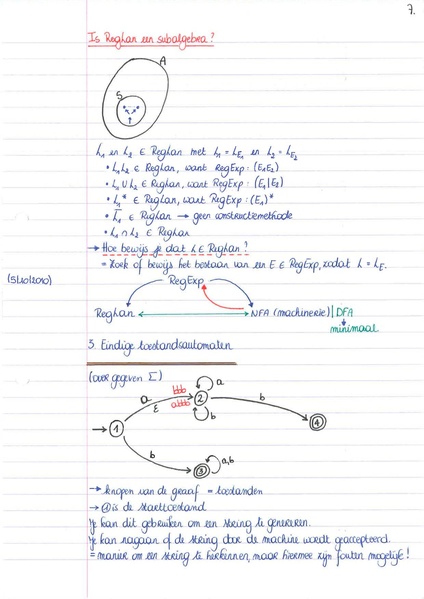 7.
Is RegLan een subalgebra?
A
S
L₁ en L₂ ∈ RegLan met L₁ = L_E₁ en L₂ = L_E₂
• L₁L₂ ∈ RegLan, want RegExp: (E₁E₂)
• L₁ ∪ L₂ ∈ RegLan, want RegExp: (E₁|E₂)
• L₁* ∈ RegLan, want RegExp: (E₁)*
• L̅₁ ∈ RegLan → geen constructiemethode
• L₁ ∩ L₂ ∈ RegLan
→ Hoe bewijs je dat L ∈ RegLan?
= Zoek of bewijs het bestaan van een E ∈ RegExp, zodat L = L_E.
(5/10/2010)
RegExp
RegLan
NFA (machinerie) | DFA
minimaal
5. Eindige toestandsautomaten
(over gegeven Σ)
a
bbb
a
ε
abbb
2
b
b
1
4
b
3
a,b
→ knopen van de graaf = toestanden
→ ① is de starttoestand
Je kan dit gebruiken om een string te genereren.
Je kan nagaan of de string door de machine wordt geaccepteerd.
= manier om een string te herkennen, maar hiermee zijn fouten mogelijk!